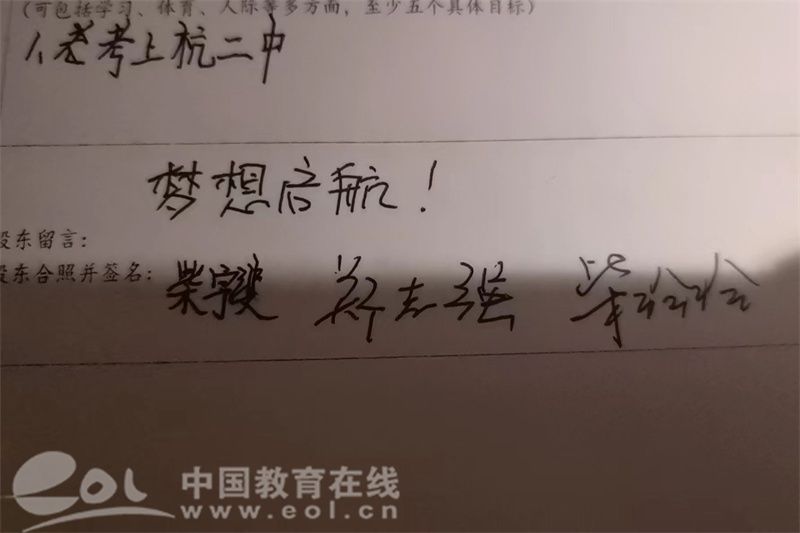 (可包括学习、体育、人际等多方面，至少五个具体目标)
1、考上杭二中
梦想启航！
股东留言：
股东合照并签名：柴宇 郑志强 柴
eol 中国教育在线
www.eol.cn